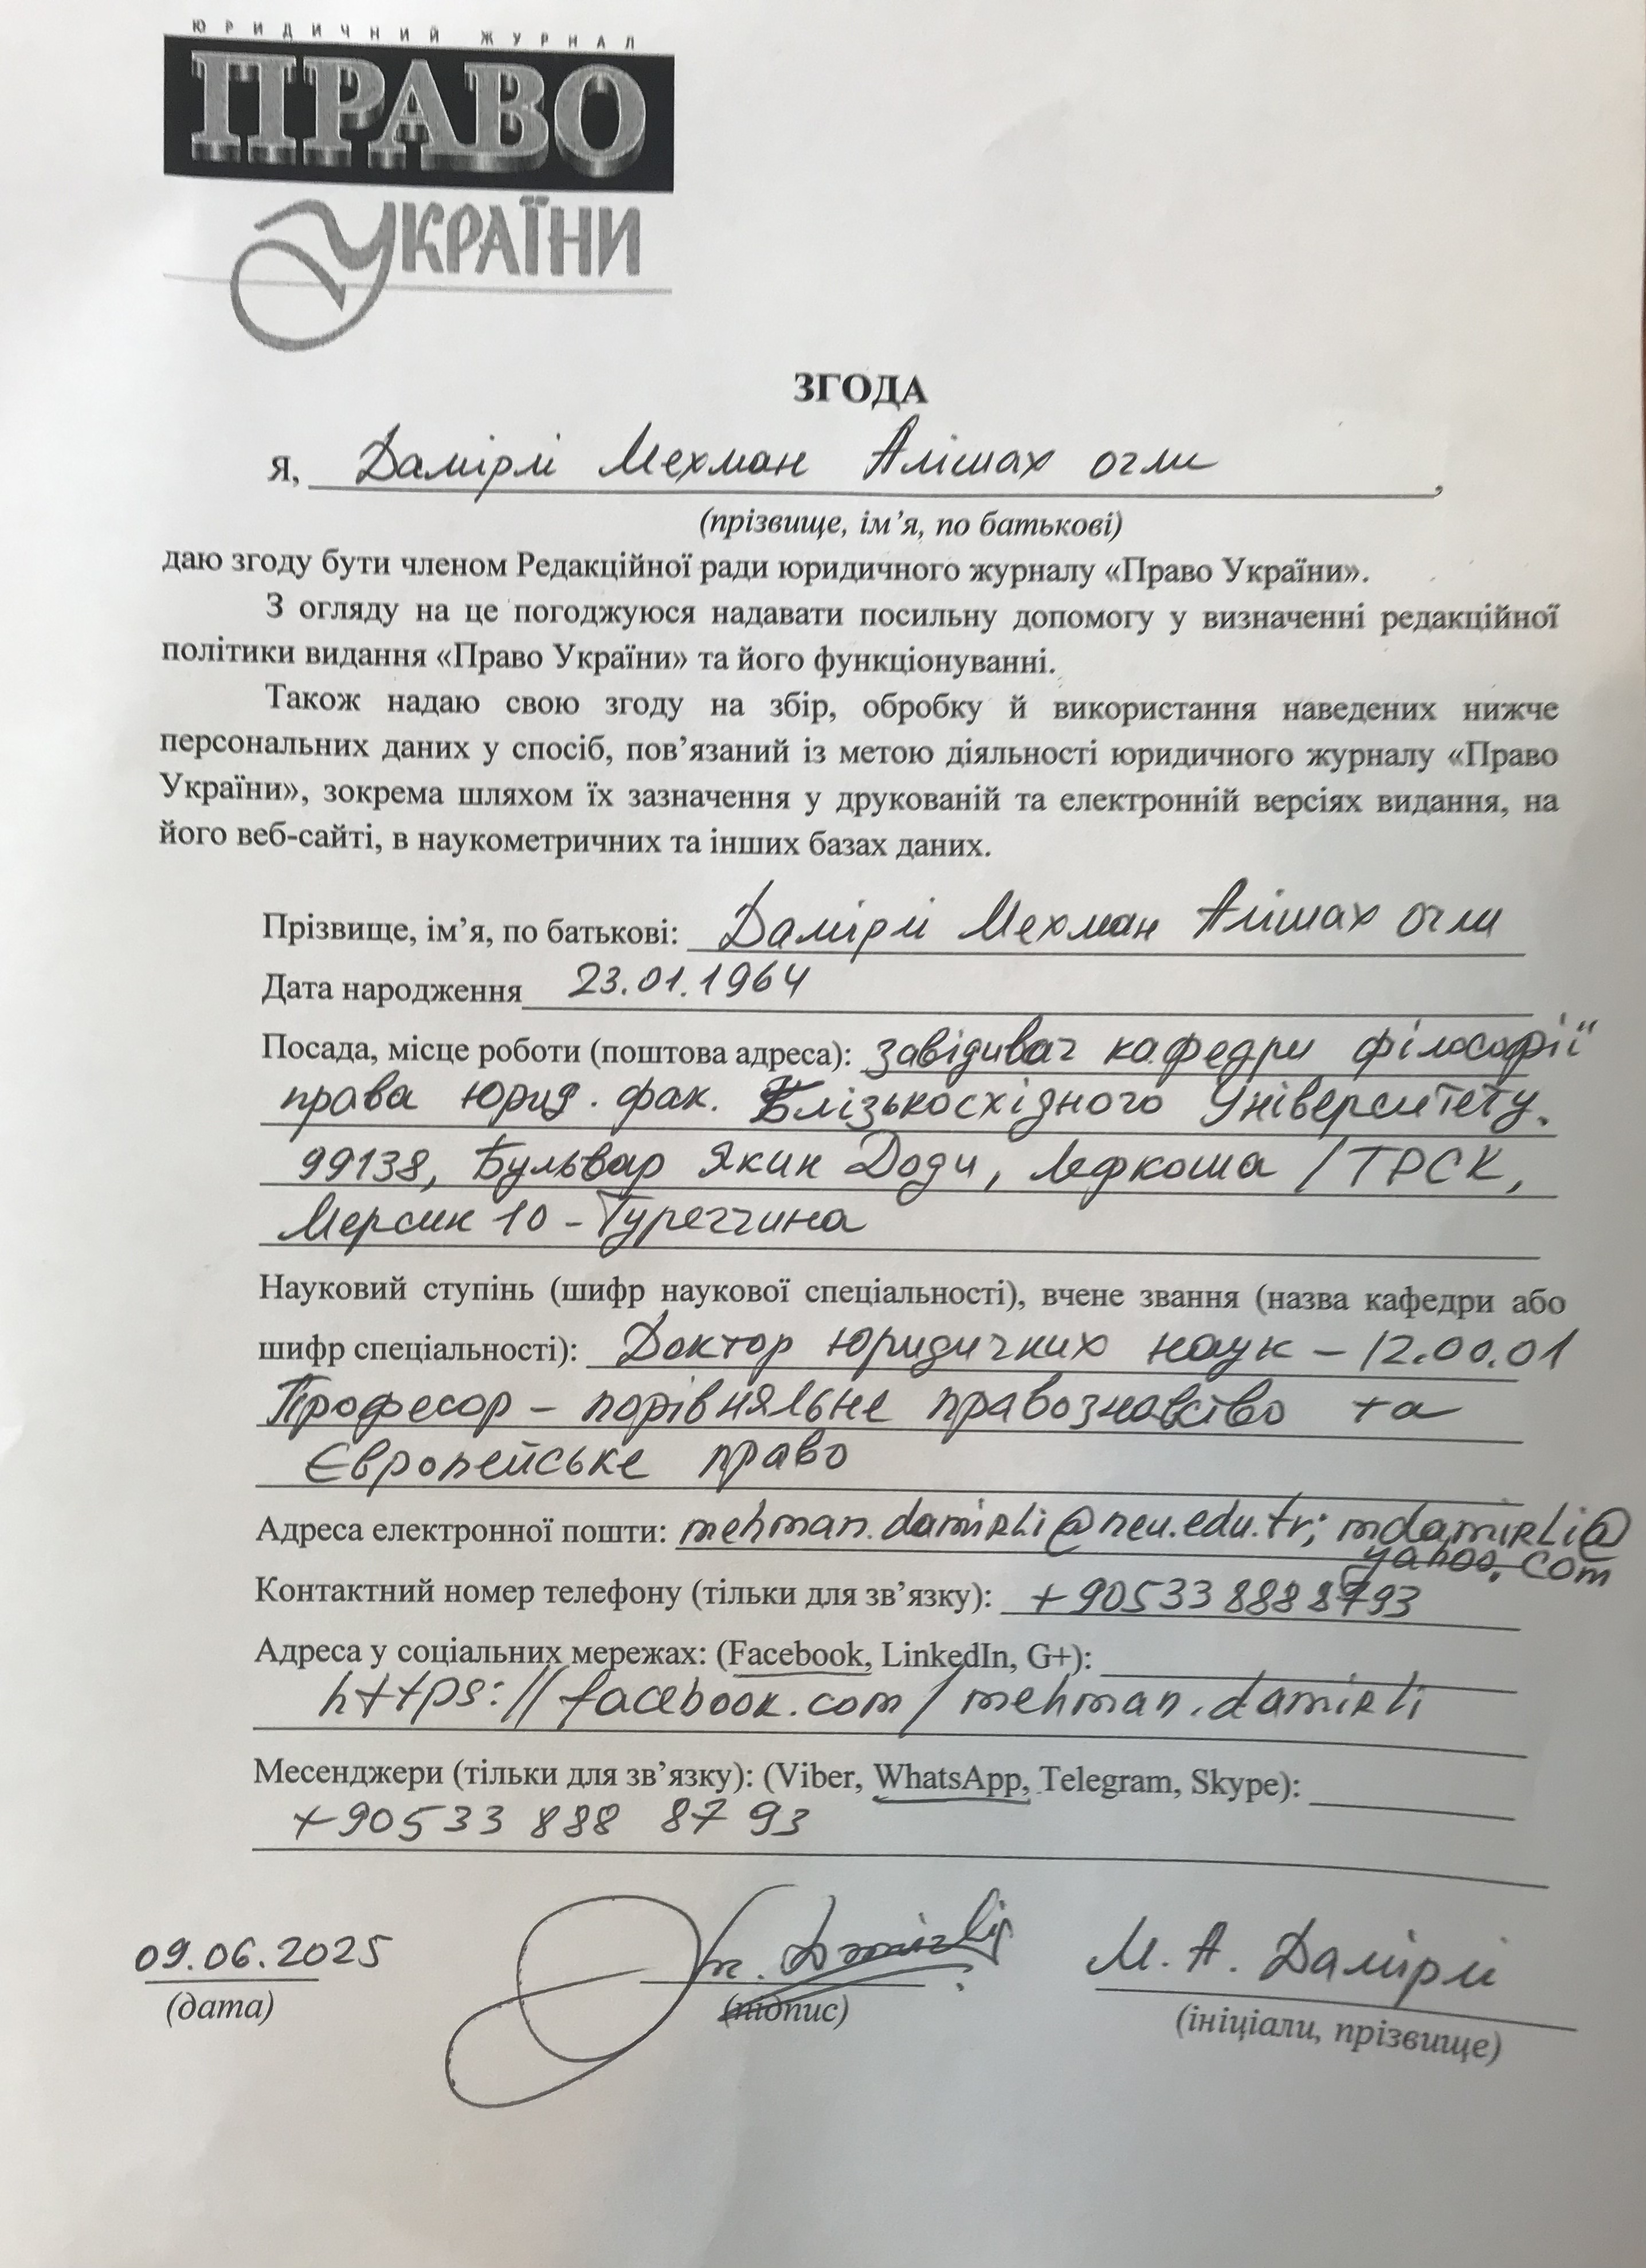 ЮРИДИЧНИЙ ЖУРНАЛ
ПРАВО
УКРАЇНИ
ЗГОДА
Я, Дамірлі Мехман Алішах огли,
(прізвище, ім’я, по батькові)
даю згоду бути членом Редакційної ради юридичного журналу «Право України».
З огляду на це погоджуюся надавати посильну допомогу у визначенні редакційної
політики видання «Право України» та його функціонуванні.
Також надаю свою згоду на збір, обробку й використання наведених нижче
персональних даних у спосіб, пов’язаний із метою діяльності юридичного журналу «Право
України», зокрема шляхом їх зазначення у друкованій та електронній версіях видання, на
його веб-сайті, в наукометричних та інших базах даних.
Прізвище, ім’я, по батькові: Дамірлі Мехман Алішах огли
Дата народження 23.01.1964
Посада, місце роботи (поштова адреса): завідивач кафедри філософії
права юрид. фак. Блізькосхідного Університету.
99138, Бульвар Якин Доди, Лефкоша / ТРСК,
Мерсин 10 - Туреччина
Науковий ступінь (шифр наукової спеціальності), вчене звання (назва кафедри або
шифр спеціальності): Доктор юридичних наук – 12.00.01
Професор – порівняльне правознавство та
Європейське право
Адреса електронної пошти: mehman.damirli@neu.edu.tr; mdamirli@
yahoo.com
Контактний номер телефону (тільки для зв’язку): +90533 888 8793
Адреса у соціальних мережах: (Facebook, LinkedIn, G+):
https://facebook.com/mehman.damirli
Месенджери (тільки для зв’язку): (Viber, WhatsApp, Telegram, Skype):
+90533 888 87 93
09.06.2025 M. Damirli М. А. Дамірлі
(дата) (підпис) (ініціали, прізвище)